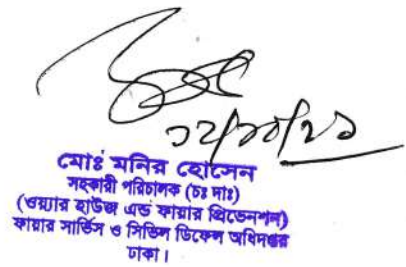 ১২/১০/২১
মোঃ মনির হোসেন
সহকারী পরিচালক (চঃ দাঃ)
(ওয়্যার হাউজ এন্ড ফায়ার প্রিভেনশন)
ফায়ার সার্ভিস ও সিভিল ডিফেন্স অধিদপ্তর
ঢাকা।